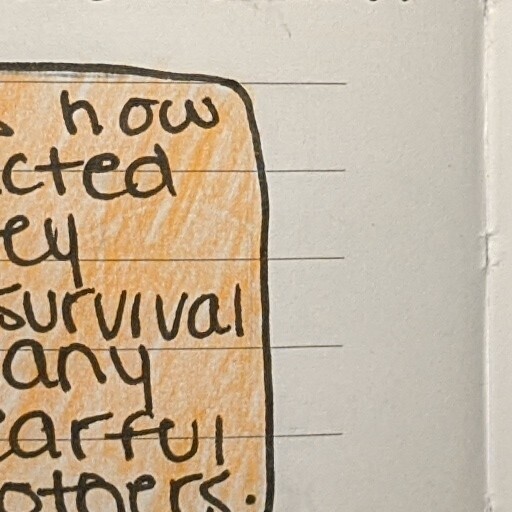 s now
cted
ey
survival
any
earful
others.